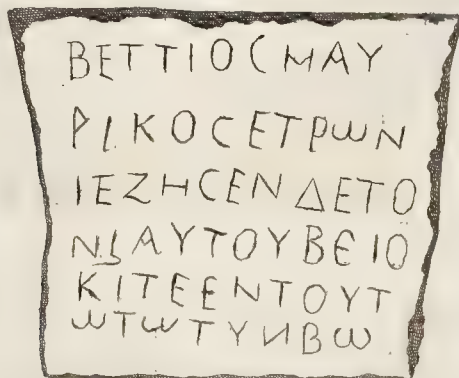 ΒΕΤΤΙΟϹΜΑΥ
ΡΙΚΟϹΕΤΡωΝ
ΙΕΖΗϹΕΝΔΕΤΟ
ΝΑΥΤΟΥΒЄΙΟ
ΚΙΤΕΕΝΤΟΥΤ
ωΤωΤΥΝΒω